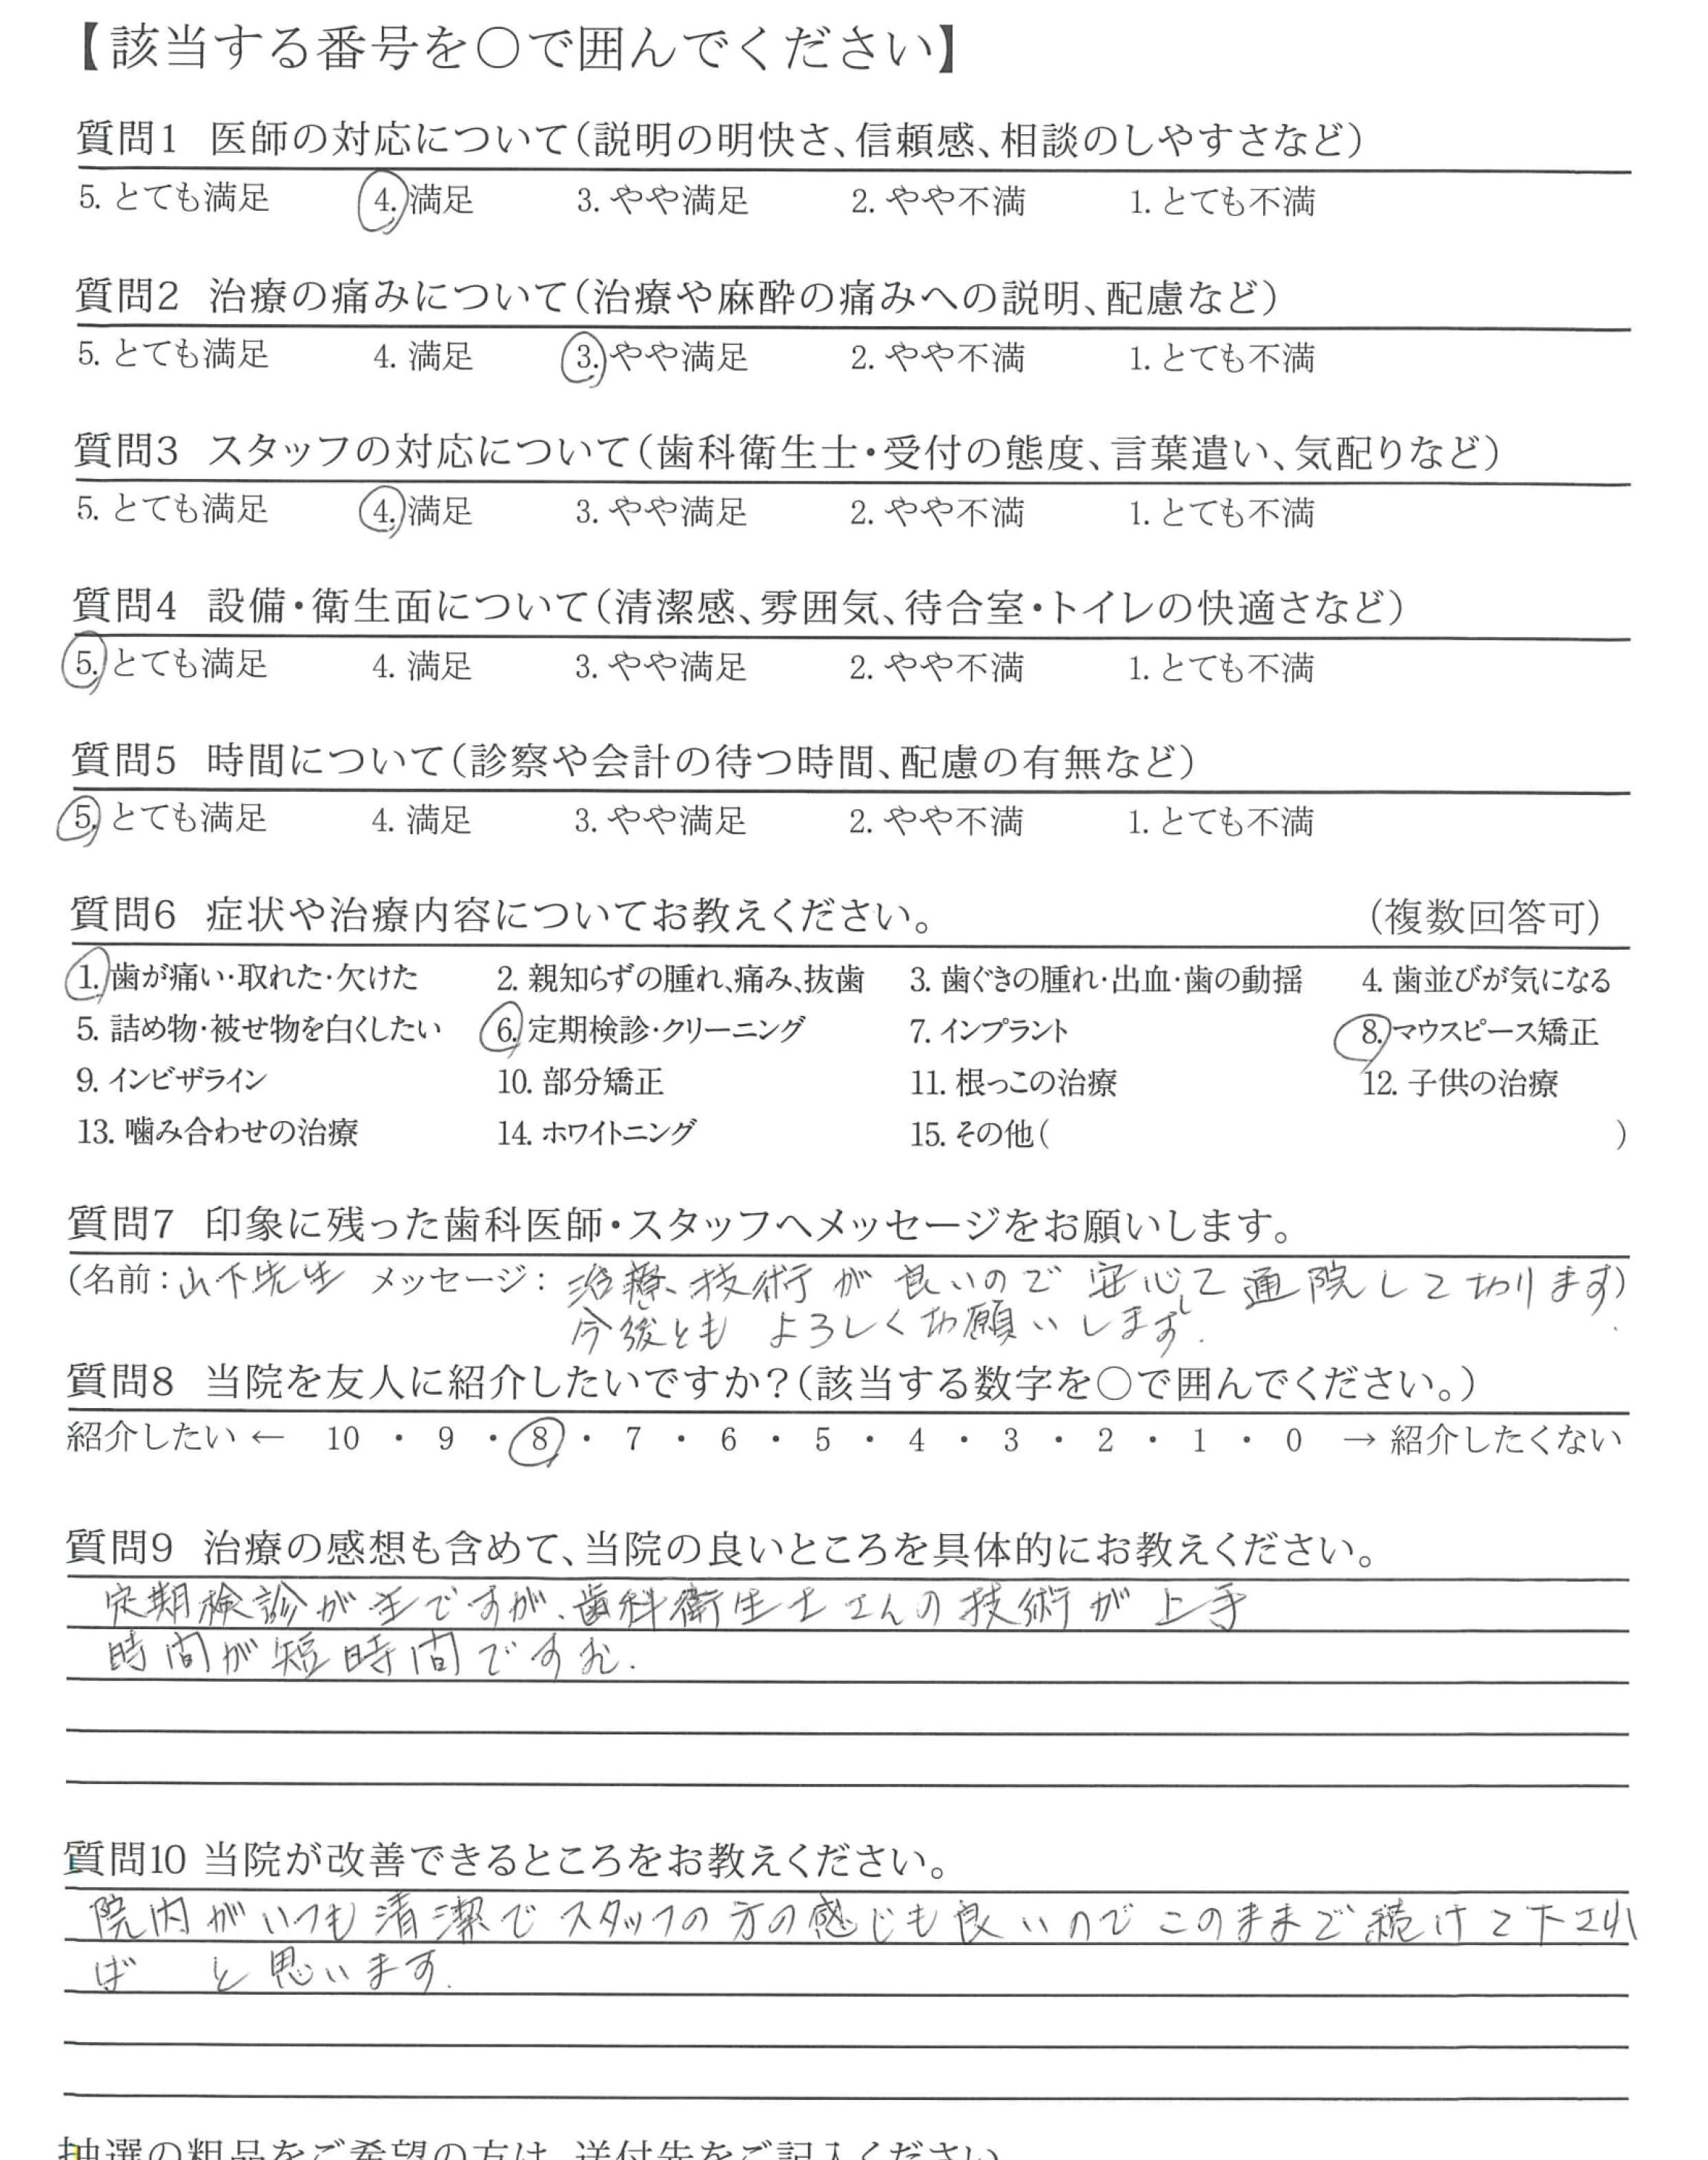 【該当する番号を○で囲んでください】
質問1 医師の対応について(説明の明快さ、信頼感、相談のしやすさなど)
5. とても満足 4. 満足 3. やや満足 2. やや不満 1. とても不満
質問2 治療の痛みについて(治療や麻酔の痛みへの説明、配慮など)
5. とても満足 4. 満足 3. やや満足 2. やや不満 1. とても不満
質問3 スタッフの対応について(歯科衛生士・受付の態度、言葉遣い、気配りなど)
5. とても満足 4. 満足 3. やや満足 2. やや不満 1. とても不満
質問4 設備・衛生面について(清潔感、雰囲気、待合室・トイレの快適さなど)
5. とても満足 4. 満足 3. やや満足 2. やや不満 1. とても不満
質問5 時間について(診察や会計の待つ時間、配慮の有無など)
5. とても満足 4. 満足 3. やや満足 2. やや不満 1. とても不満
質問6 症状や治療内容についてお教えください。 (複数回答可)
1. 歯が痛い・取れた・欠けた 2. 親知らずの腫れ、痛み、抜歯 3. 歯ぐきの腫れ・出血・歯の動揺 4. 歯並びが気になる
5. 詰め物・被せ物を白くしたい 6. 定期検診・クリーニング 7. インプラント 8. マウスピース矯正
9. インビザライン 10. 部分矯正 11. 根っこの治療 12. 子供の治療
13. 噛み合わせの治療 14. ホワイトニング 15. その他( )
質問7 印象に残った歯科医師・スタッフへメッセージをお願いします。
(名前:山下先生 メッセージ: 治療、技術が良いので安心して通院しております)
今後とも よろしくお願いします.
質問8 当院を友人に紹介したいですか?(該当する数字を○で囲んでください。)
紹介したい ← 10 ・ 9 ・ 8 ・ 7 ・ 6 ・ 5 ・ 4 ・ 3 ・ 2 ・ 1 ・ 0 → 紹介したくない
質問9 治療の感想も含めて、当院の良いところを具体的にお教えください。
定期検診が主ですが、歯科衛生士さんの技術が上手
時間が短時間ですむ.
質問10 当院が改善できるところをお教えください。
院内がいつも清潔でスタッフの方の感じも良いのでこのままで続けて下され
ば と思います.
抽選の粗品をご希望の方は、送付先をご記入ください